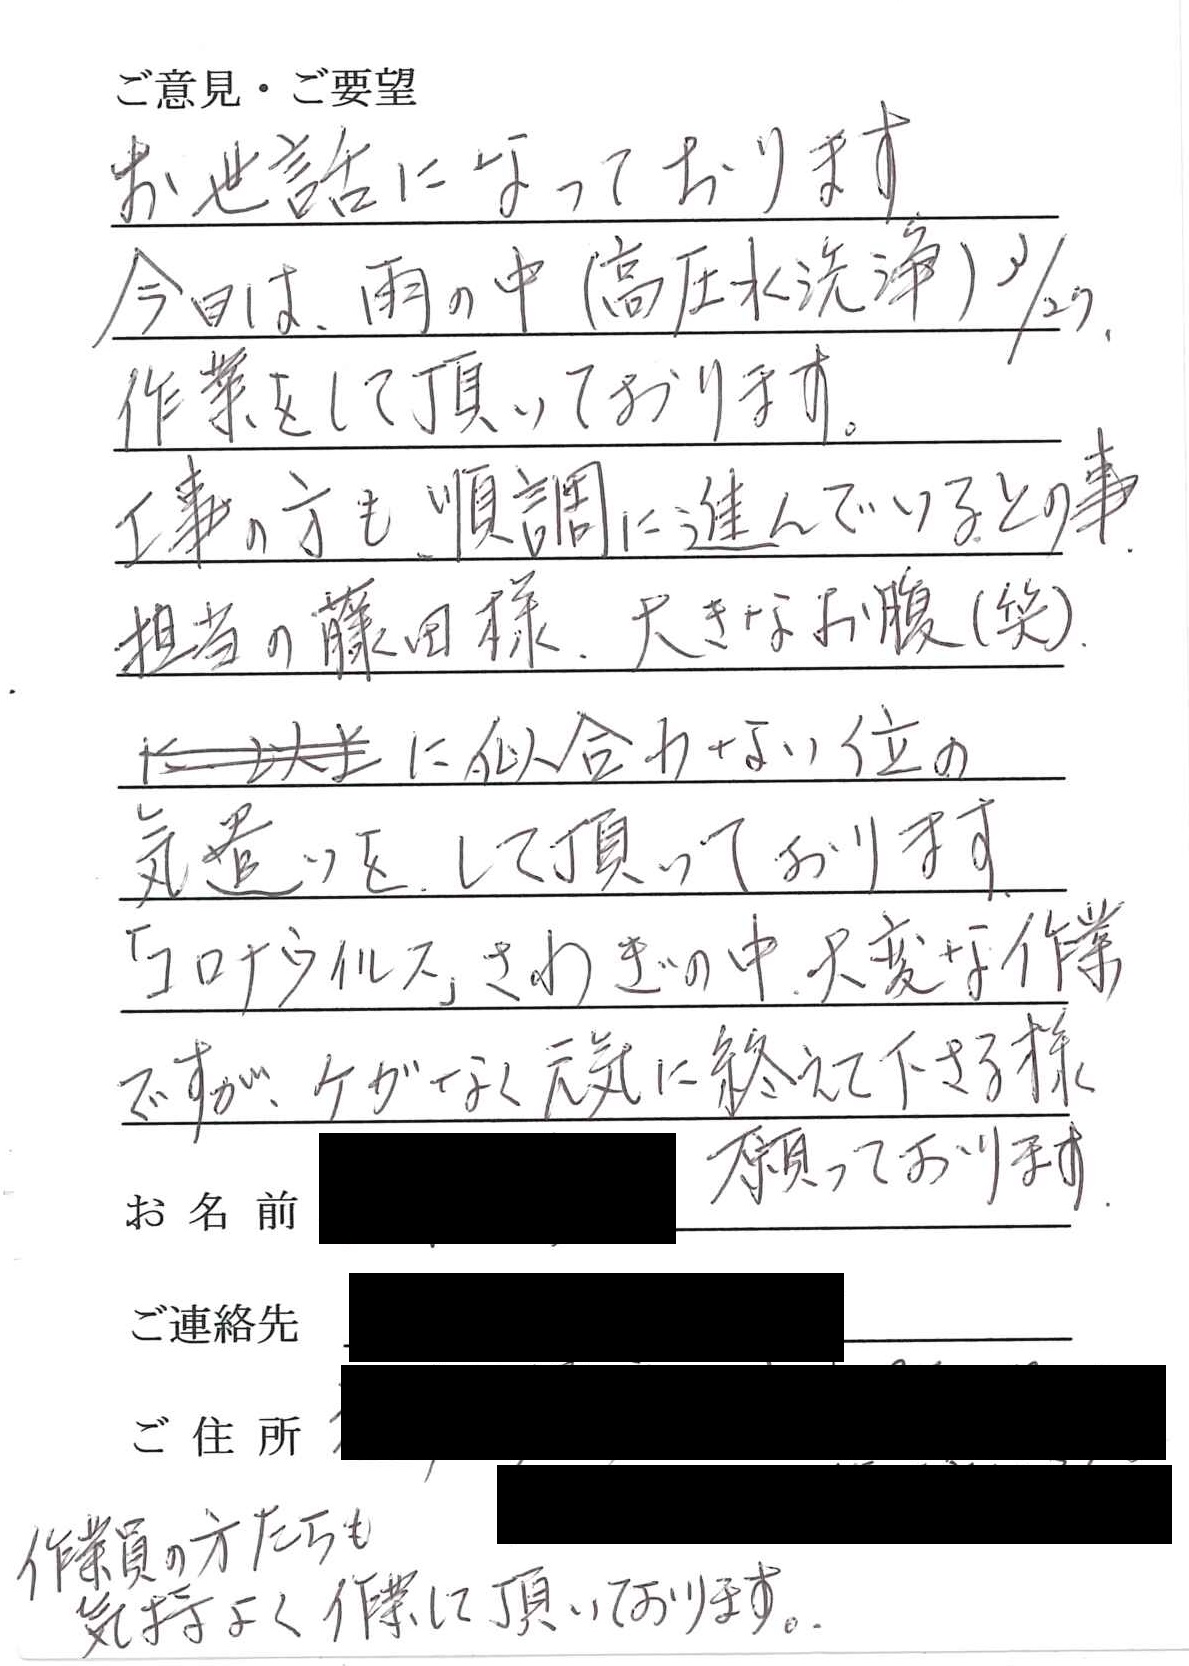 ご意見・ご要望
お世話になっております
今日は、雨の中(高圧水洗浄)3/27、
作業をして頂いております。
工事の方も、順調に進んでいるとの事、
担当の藤田様、大きなお腹(笑)、
に似合わない位の
気遣いを、して頂いております、
「コロナウイルス」さわぎの中、大変な作業
ですが、ケガなく元気に終えて下さる様
願っております、
お名前
ご連絡先
ご住所
作業員の方たちも
気持よく作業して頂いております。